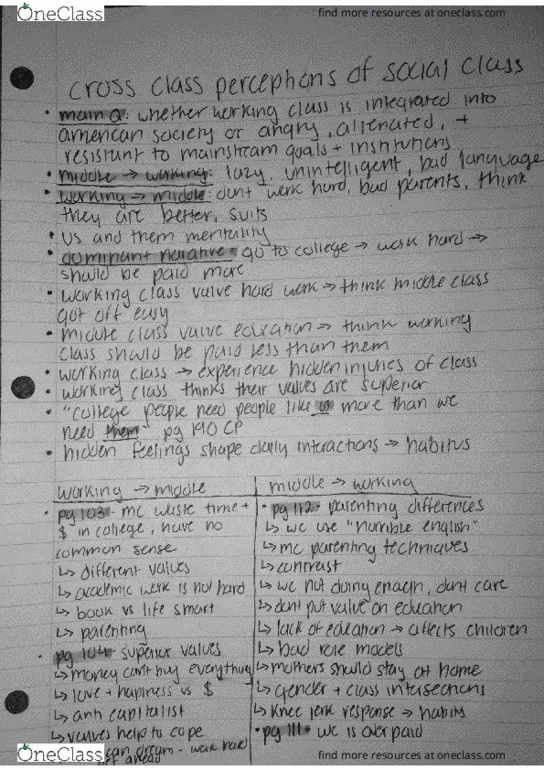 OneClass
find more resources at oneclass.com
cross class perceptions of social class
• main Q: whether working class is integrated into
american society or angry, alienated, +
resistant to mainstream goals + institutions
• middle → working: lazy, unintelligent, bad language
• working → middle: dont work hard, bad parents, think
they are better, suits
• us and them mentality
• dominant narative = go to college → work hard →
should be paid more
• working class value hard work → think middle class
got off easy
• middle class value education → think working
class should be paid less than them
• working class → experience hidden injuries of class
• working class thinks their values are superior
• "college people need people like us more than we
need them" pg 190 CP
• hidden feelings shape daily interactions → habitus
working → middle
• pg 103 - mc waste time +
$ in college, have no
common sense
↳ different values
↳ academic work is not hard
↳ book vs life smart
↳ parenting
• pg 104 - superior values
↳ money can't buy everything
↳ love + happiness vs $
↳ anti capitalist
↳ values help to cope
can dream - work hard
ahead
middle → working
• pg 112 - parenting differences
↳ wc use "horrible english"
↳ mc parenting techniques
↳ contrast
↳ wc not doing enough, dont care
↳ dont put value on education
↳ lack of education → affects children
↳ bad role models
↳ mothers should stay at home
↳ gender + class intersections
↳ knee jerk response → habits
• pg 111 - wc is over paid
OneClass
find more resources at oneclass.com